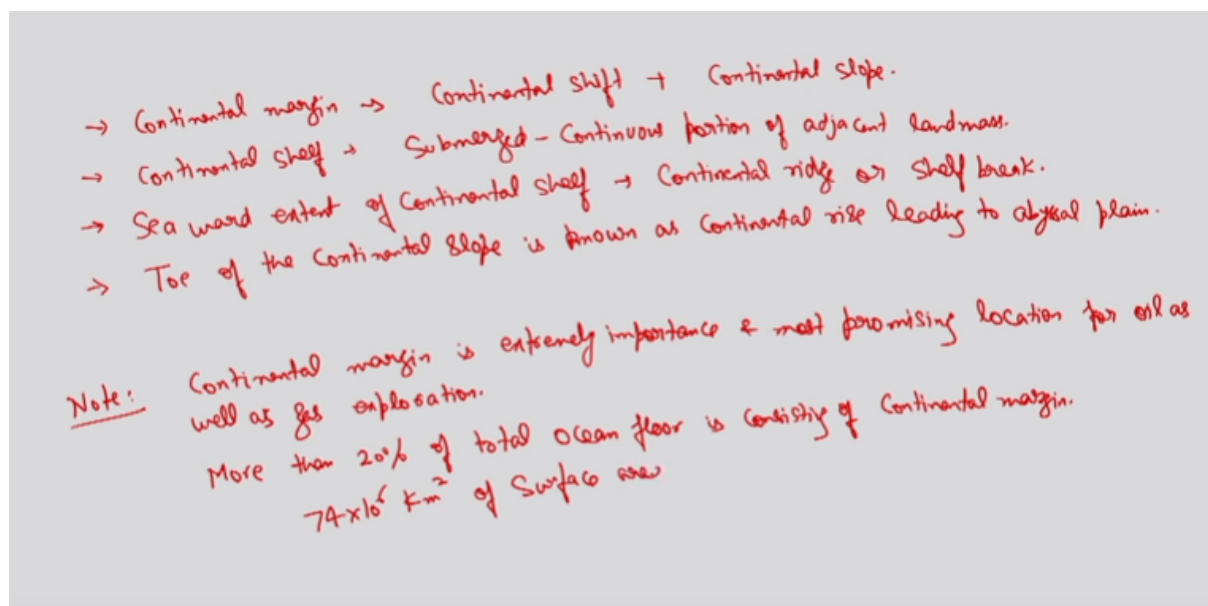 → Continental margin → Continental shift + Continental slope.
→ Continental shelf → Submerged - Continuous portion of adjacent landmass.
→ Sea ward extent of Continental shelf → Continental ridge or shelf break.
→ Toe of the Continental slope is known as Continental rise leading to abyssal plain.
Note: Continental margin is extremely importance & most promising location for oil as
well as gas exploration.
More than 20% of total ocean floor is consisting of Continental margin.
74×10⁶ Km² of Surface area